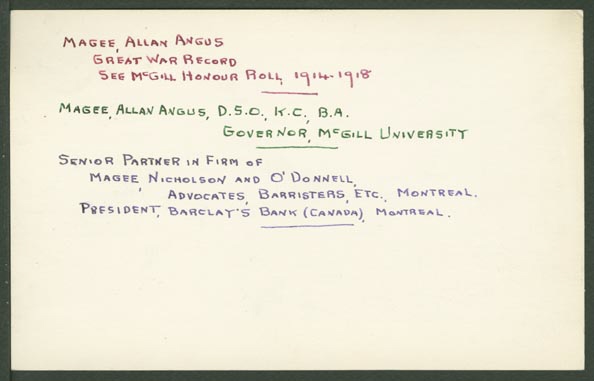 MAGEE, ALLAN ANGUS
GREAT WAR RECORD
SEE McGILL HONOUR ROLL, 1914-1918
MAGEE, ALLAN ANGUS, D.S.O., K.C., B.A.
GOVERNOR, McGILL UNIVERSITY
SENIOR PARTNER IN FIRM OF
MAGEE, NICHOLSON AND O'DONNELL,
ADVOCATES, BARRISTERS, ETC., MONTREAL.
PRESIDENT, BARCLAY'S BANK (CANADA), MONTREAL.